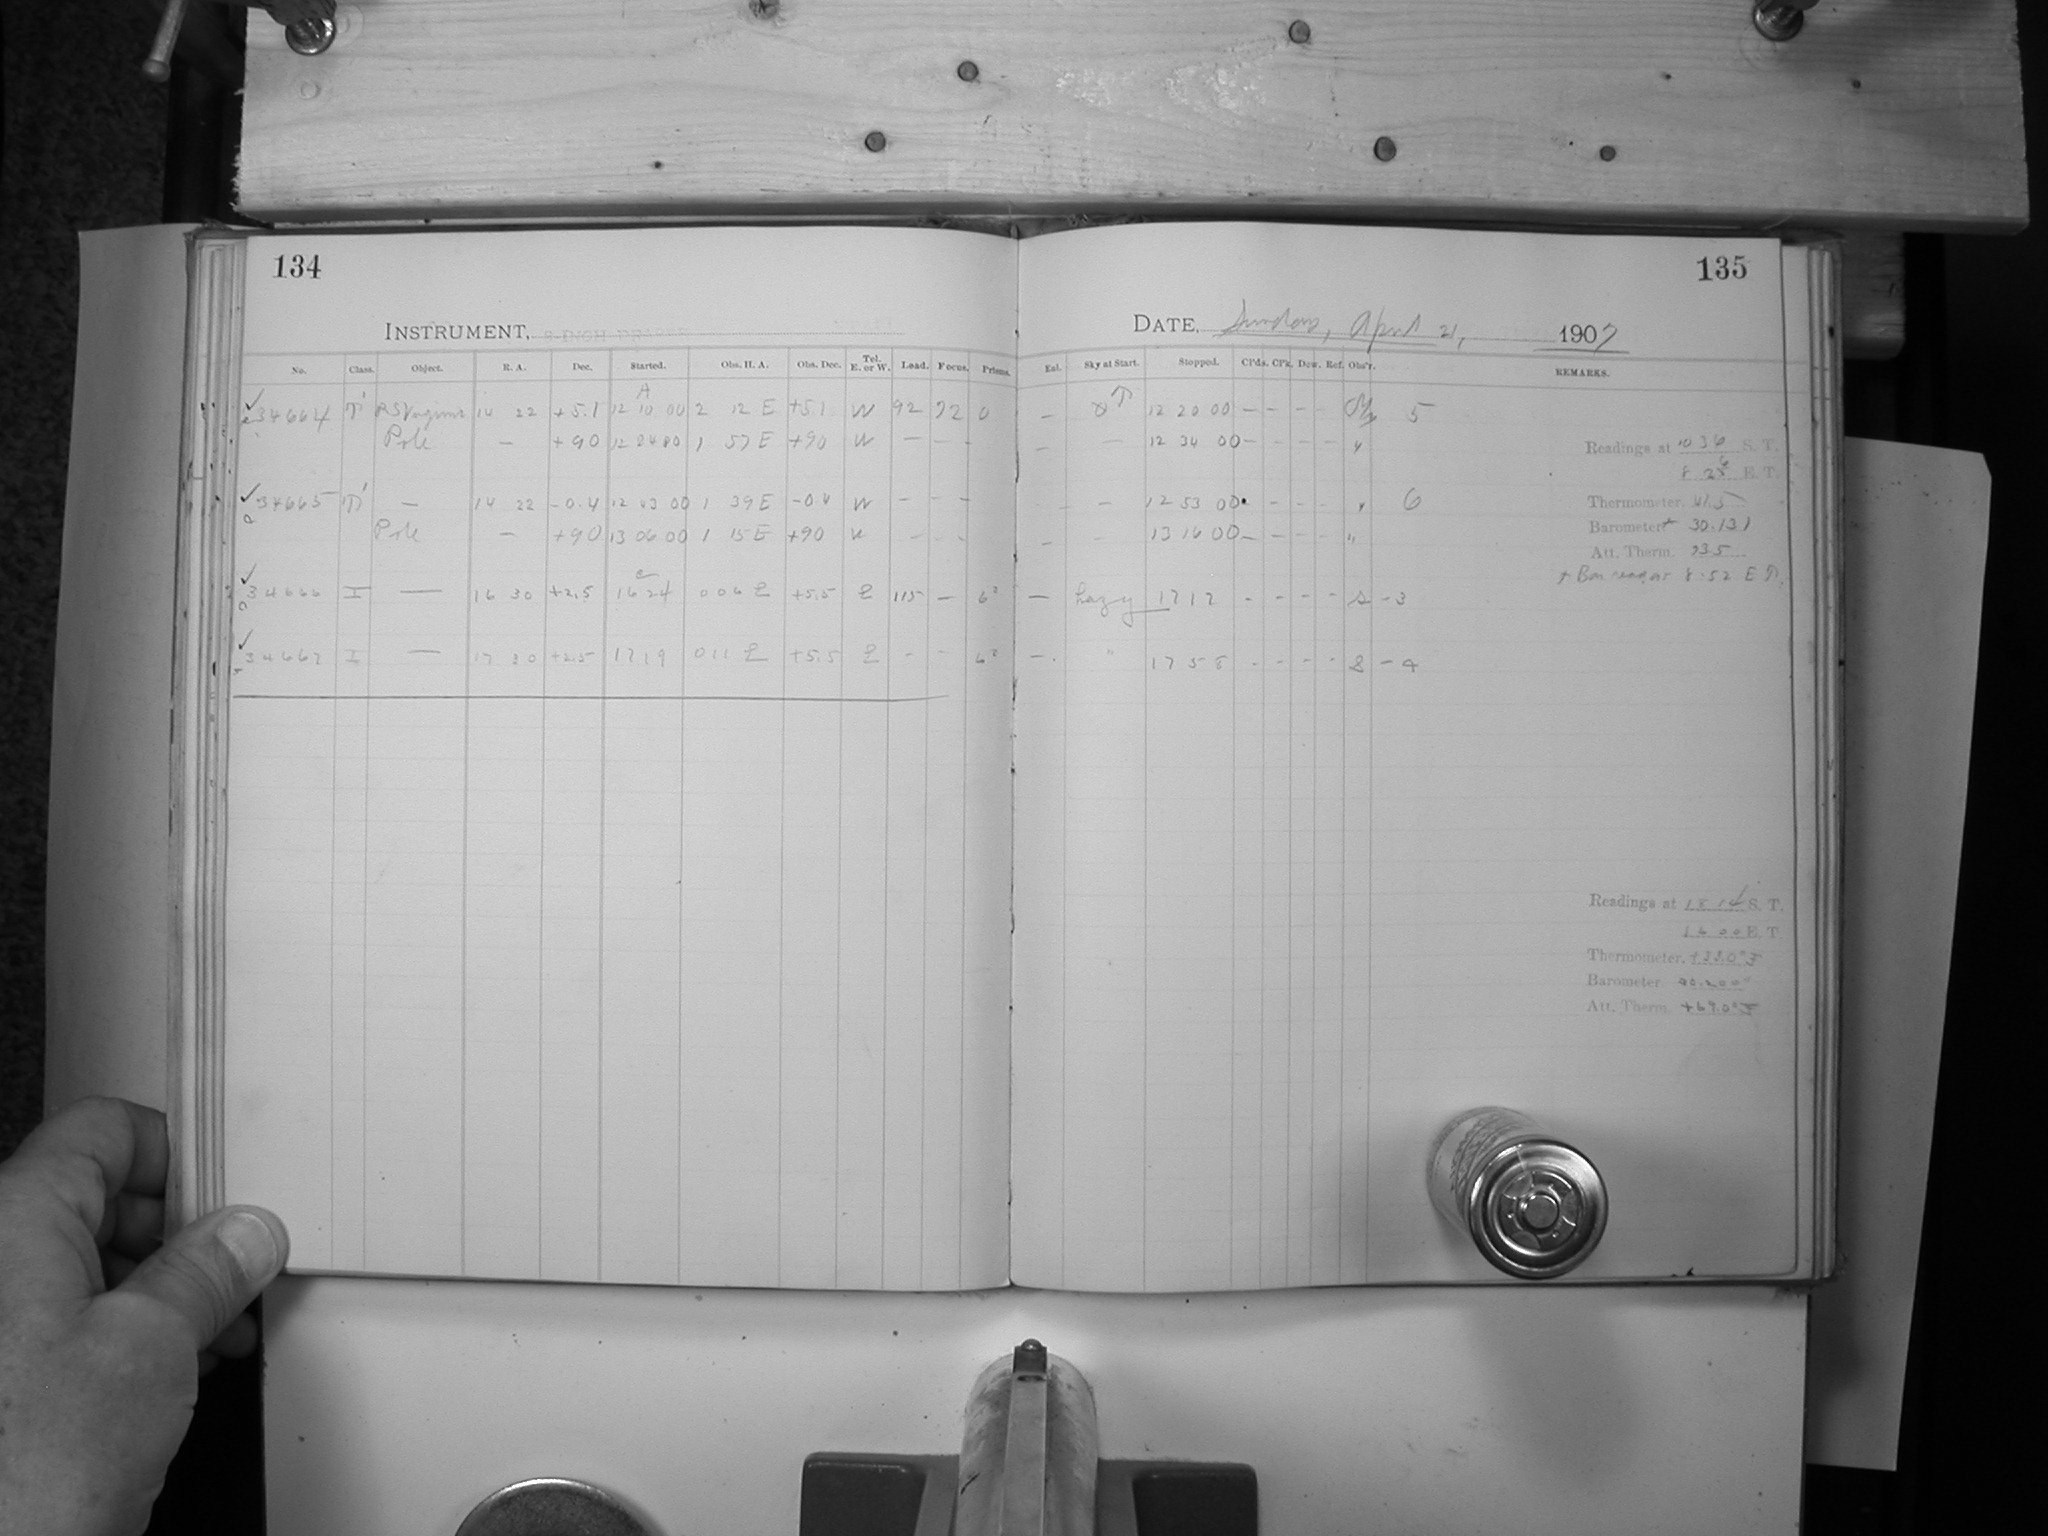 134
INSTRUMENT, 8-INCH DRAPER
No. Class. Object. R. A. Dec. Started. Obs. H. A. Obs. Dec. Tel. E. or W. Lead. Focus. Prisms.
A
34664 RS Virginis 14 22 +5.1 12 10 00 2 12 E +5.1 W 92 72 0
Pole — +90 12 24 00 1 57 E +90 W — — -
34665 — 14 22 -0.4 12 43 00 1 39 E -0.4 W - - -
Pole — +90 13 06 00 1 15 E +90 W - - -
34666 I — 16 30 +2.5 16 24 0 06 E +5.5 E 115 —
34667 I — 17 30 +2.5 17 19 0 11 E +5.5 E - -
135
DATE, Sunday, April 21, 1907
Ext. Sky at Start. Stopped. Cl'ds. Cl'k. Dew. Ref. Obs'r. REMARKS.
— 12 20 00 — - - - 5
— — 12 34 00 - - - - "
- 12 53 00 - - - " 6
— - 13 16 00 - - - - "
— hazy 17 17 - - - - S - 3
— " 17 58 - - - - S - 4
Readings at 10 36 S. T.
E. T.
Thermometer. 41.5
Barometer+ 30.131
Att. Therm. 73.5
+ Bar read at 8:52 E T.
Readings at 18 14 S. T.
16 00 E. T.
Thermometer. +33.0°F
Barometer. 30.200"
Att. Therm. +69.0°F